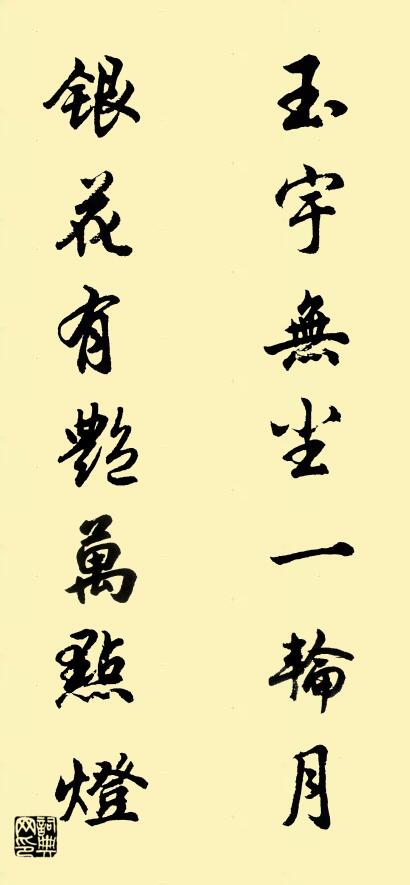 玉宇無尘一輪月
銀花有艷萬點燈
詞典网印